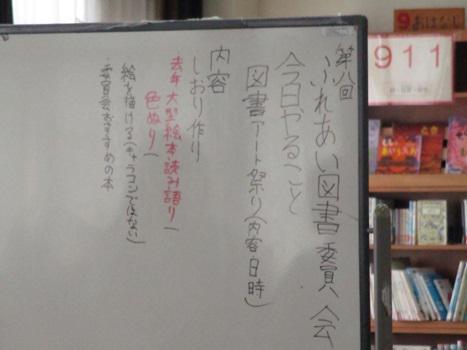 第八回
ふれあい図書委員会
今日やること
図書アート祭り(内容・日時)
内容
しおり作り
・去年 大型絵本・読み語り
色ぬり
絵を描ける(キャラコンではない)
・委員会おすすめの本
9 おはなし
911